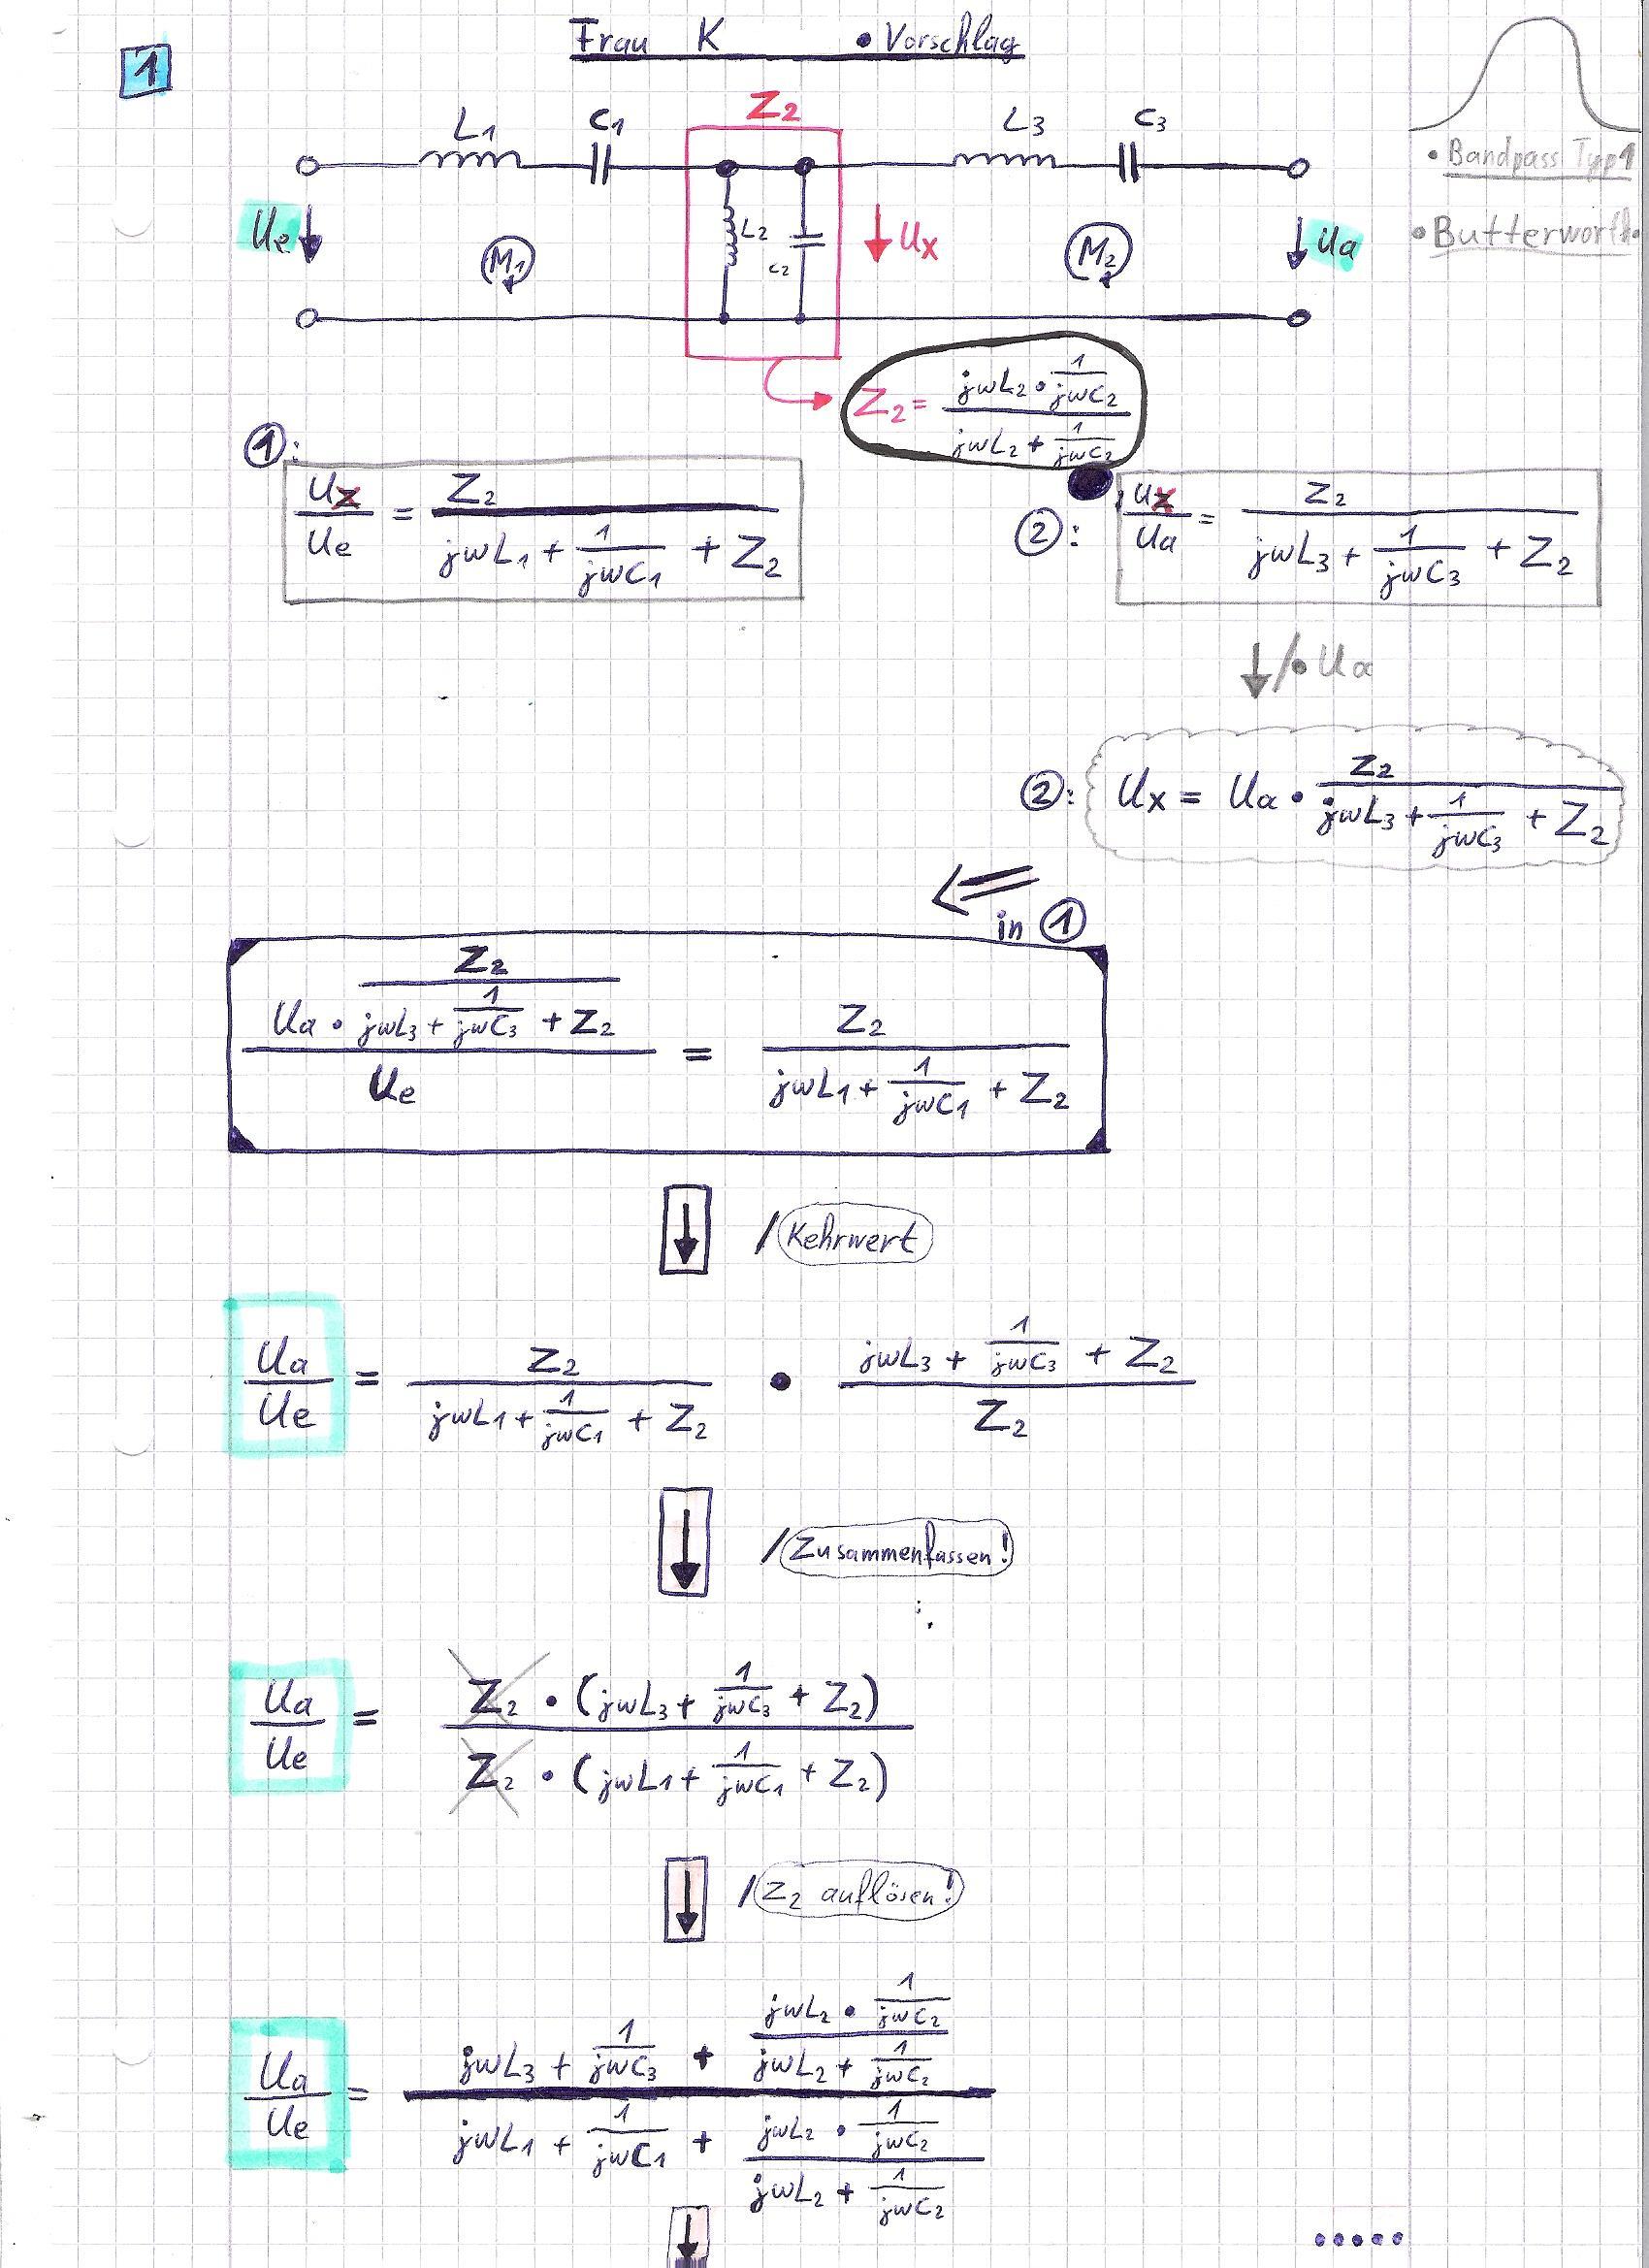 Frau K • Vorschlag
1
Z2
L1 C1 L3 C3
• Bandpass Typ 1
• Butterworth •
Ue L2 C2 Ux Ua
M1 M2
Z2 = (jωL2 • 1/(jωC2)) / (jωL2 + 1/(jωC2))
①:
Ux/Ue = Z2 / (jωL1 + 1/(jωC1) + Z2)
②: Ux/Ua = Z2 / (jωL3 + 1/(jωC3) + Z2)
↓ /• Ua
②: Ux = Ua • Z2 / (jωL3 + 1/(jωC3) + Z2)
⇐ in ①
(Ua • Z2 / (jωL3 + 1/(jωC3) + Z2)) / Ue = Z2 / (jωL1 + 1/(jωC1) + Z2)
↓ / Kehrwert
Ua/Ue = Z2 / (jωL1 + 1/(jωC1) + Z2) • (jωL3 + 1/(jωC3) + Z2) / Z2
↓ / Zusammenfassen!
Ua/Ue = (Z2 • (jωL3 + 1/(jωC3) + Z2)) / (Z2 • (jωL1 + 1/(jωC1) + Z2))
↓ / Z2 auflösen!
Ua/Ue = (jωL3 + 1/(jωC3) + (jωL2 • 1/(jωC2)) / (jωL2 + 1/(jωC2))) / (jωL1 + 1/(jωC1) + (jωL2 • 1/(jωC2)) / (jωL2 + 1/(jωC2)))
↓ •••••